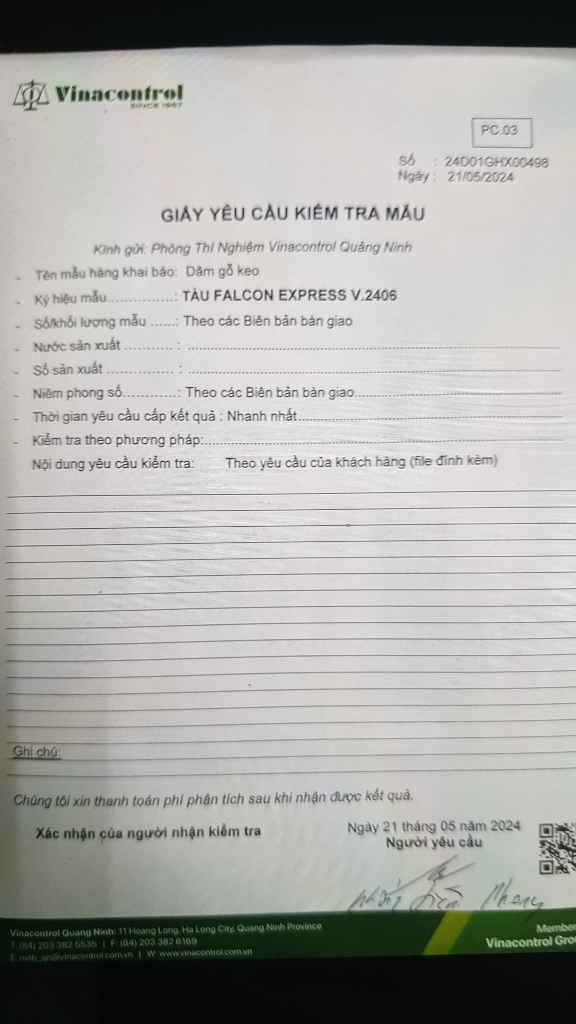 Vinacontrol
SINCE 1957
PC.03
Số : 24D01GHX00498
Ngày : 21/05/2024
GIẤY YÊU CẦU KIỂM TRA MẪU
Kính gửi: Phòng Thí Nghiệm Vinacontrol Quảng Ninh
- Tên mẫu hàng khai báo: Dăm gỗ keo
- Ký hiệu mẫu...............: TÀU FALCON EXPRESS V.2406
- Số/khối lượng mẫu ......: Theo các Biên bản bàn giao
- Nước sản xuất ............ : ................
- Số sản xuất ................ : ................
- Niêm phong số............: Theo các Biên bản bàn giao................
- Thời gian yêu cầu cấp kết quả : Nhanh nhất................
- Kiểm tra theo phương pháp:................
Nội dung yêu cầu kiểm tra: Theo yêu cầu của khách hàng (file đính kèm)
Ghi chú:
Chúng tôi xin thanh toán phí phân tích sau khi nhận được kết quả.
Ngày 21 tháng 05 năm 2024
Xác nhận của người nhận kiểm tra Người yêu cầu
Phong
Vinacontrol Quang Ninh: 11 Hoang Long, Ha Long City, Quang Ninh Province
T: (84) 203 382 5535 | F: (84) 203 382 6169
E: nvth_qn@vinacontrol.com.vn | W: www.vinacontrol.com.vn
Member
Vinacontrol Grou